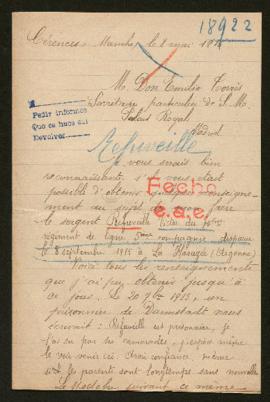 18922
Cérences Manche le 8 mai 191
M. Don Emilio Torrès
Secrétaire particulier de S. M.
Palais Royal
Madrid
Pedir informes
Que se haga
Devolver
Refuveille
vous serais bien
reconnaissante, s'il vous était
possible d'obtenir renseigne-
ment au sujet de mon
Fecho
c.a.e.
le sergent Refuveille
régiment de ligne 5me compagnie disparu
le 8 septembre 1915 à La Harazée (Argonne)
Voici tous les renseignements
que j'ai pu obtenir jusqu'à
ce jour. Le 20 9bre 1915, un
prisonnier de Darmstadt nous
écrivait: Refuveille est prisonnier, je
l'ai su par les camarades, j'espère même
le voir venir ici. Ayez confiance, même
si les parents sont longtemps sans nouvelles.
Le suivant ce même